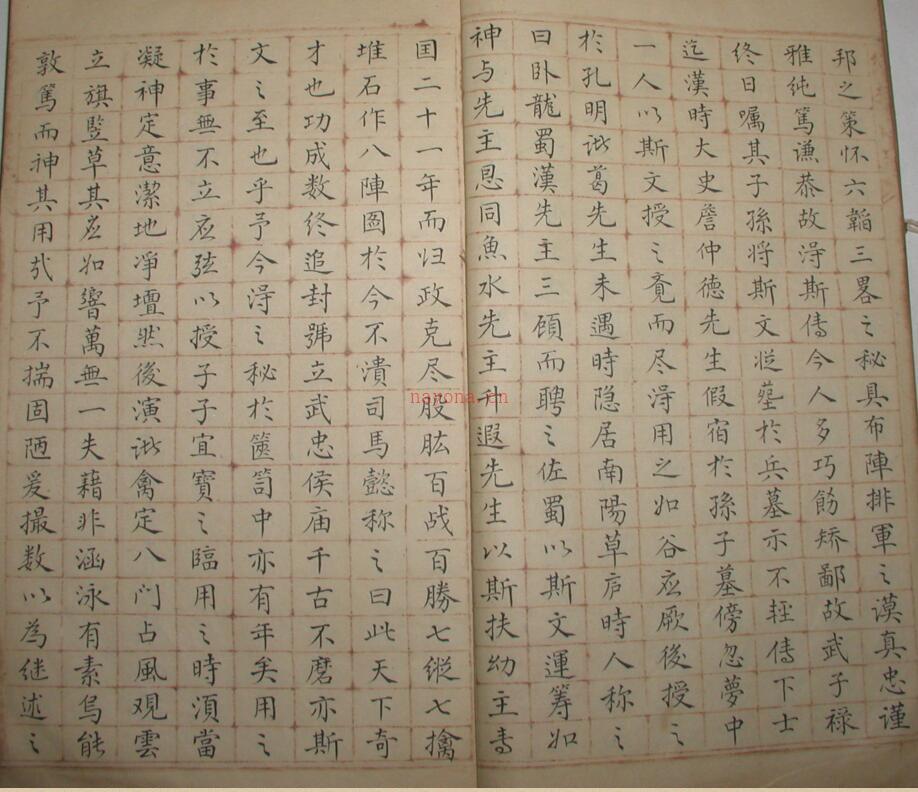 邦之策怀六韜三畧之秘具布陣排軍之謨真忠谨
雅纯篤谦恭故淂斯传今人多巧餙矫鄙故武子祿
终日嘱其子孫将斯文从墓於兵墓示不轻傳下士
迄漢時大史詹仲德先生假宿於孫子墓傍忽夢中
一人以斯文授之竟而尽淂用之如谷应厥後授之
於孔明诸葛先生未遇時隐居南陽草庐時人称之
曰卧龍蜀漢先主三顾而聘之佐蜀以斯文運筹如
神与先主恩同魚水先主升遐先生以斯扶幼主寿
国二十一年而归政克尽股肱百战百勝七縱七擒
堆石作八陣圖於今不潰司馬懿称之曰此天下奇
才也功成数终追封號立武忠侯庙千古不磨亦斯
文之至也乎予今淂之秘於箧笥中亦有年矣用之
於事無不立应弦以授子子宜寶之臨用之時須當
凝神定意潔地凈壇然後演诸禽定八门占風观雲
立旗竪草其应如響萬無一失藉非涵泳有素烏能
敦篤而神其用哉予不揣固陋爰撮数以為继述之
nayona.cn